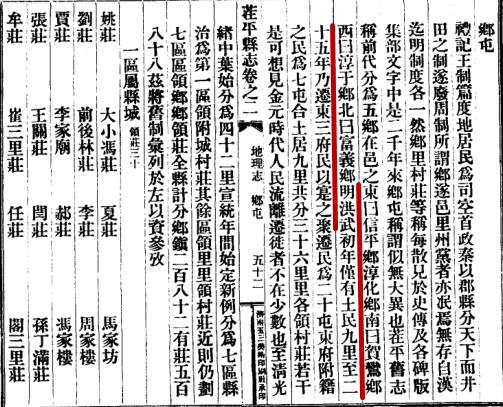 鄉屯
禮記王制篇度地居民為司空首政秦以郡縣分天下而井
田之制遂廢周制所謂鄉遂邑里州黨者亦泯焉無存自漢
迄明制度各一然鄉里村莊等稱每散見於史傳及各碑版
集部文字中是二千年來鄉屯稱謂似無大異也茌平舊志
稱前代分為五鄉在邑之東曰信平鄉淳化鄉南曰賀鸞鄉
西曰淳于鄉北曰富義鄉明洪武初年僅有土民九里至二
十五年乃遷東三府民以寔之聚遷民為二十屯東府附籍
之民為七屯合土居九里共分三十六里里各領村莊若干
是可想見金元時代人民流離遷徙者不在少數也至清光
茌平縣志卷之二 地理志 鄉屯 五十二 濟南五三美術印刷社承印
緒中葉始分為四十二里宣統年間始定新例分為七區縣
治為第一區領附城村莊其餘區領里里領村莊近則仍劃
七區區領鄉鄉領莊全縣計分鄉鎮二百八十二有莊五百
八十八茲將舊制彙列於左以資參攷
一區屬縣城 領莊三十
姚莊 大小馮莊 夏莊 馬家坊
劉莊 前後林莊 李莊 周家樓
賈莊 李家廟 郝莊 馮家樓
張莊 王關莊 閆莊 孫丁滿莊
牟莊 崔三里莊 任莊 閻三里莊